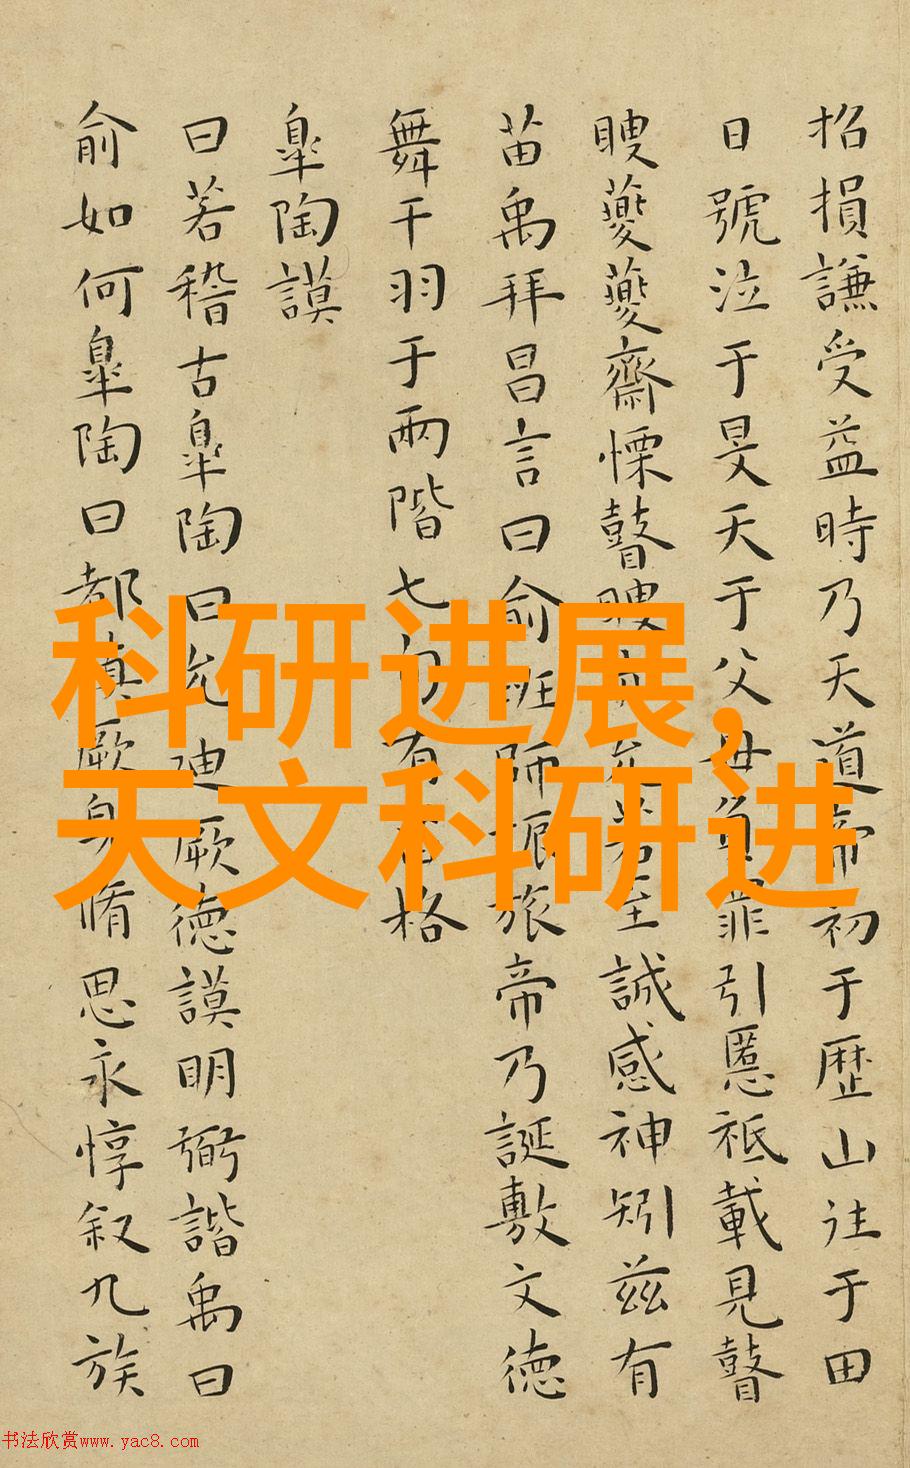 招損謙受益時乃天道帝初于歷山往于田
日號泣于旻天于父母負罪引慝祗載見瞽
瞍夔夔齋慄瞽瞍亦允若至誠感神矧兹有
苗禹拜昌言曰俞班師振旅帝乃誕敷文德
舞干羽于兩階七旬有苗格
臯陶謨
曰若稽古臯陶曰允迪厥德謨明弼諧禹曰
俞如何臯陶曰都慎厥身脩思永惇叙九族
科研进展,
天文科研进
书法欣赏www.yac8.com